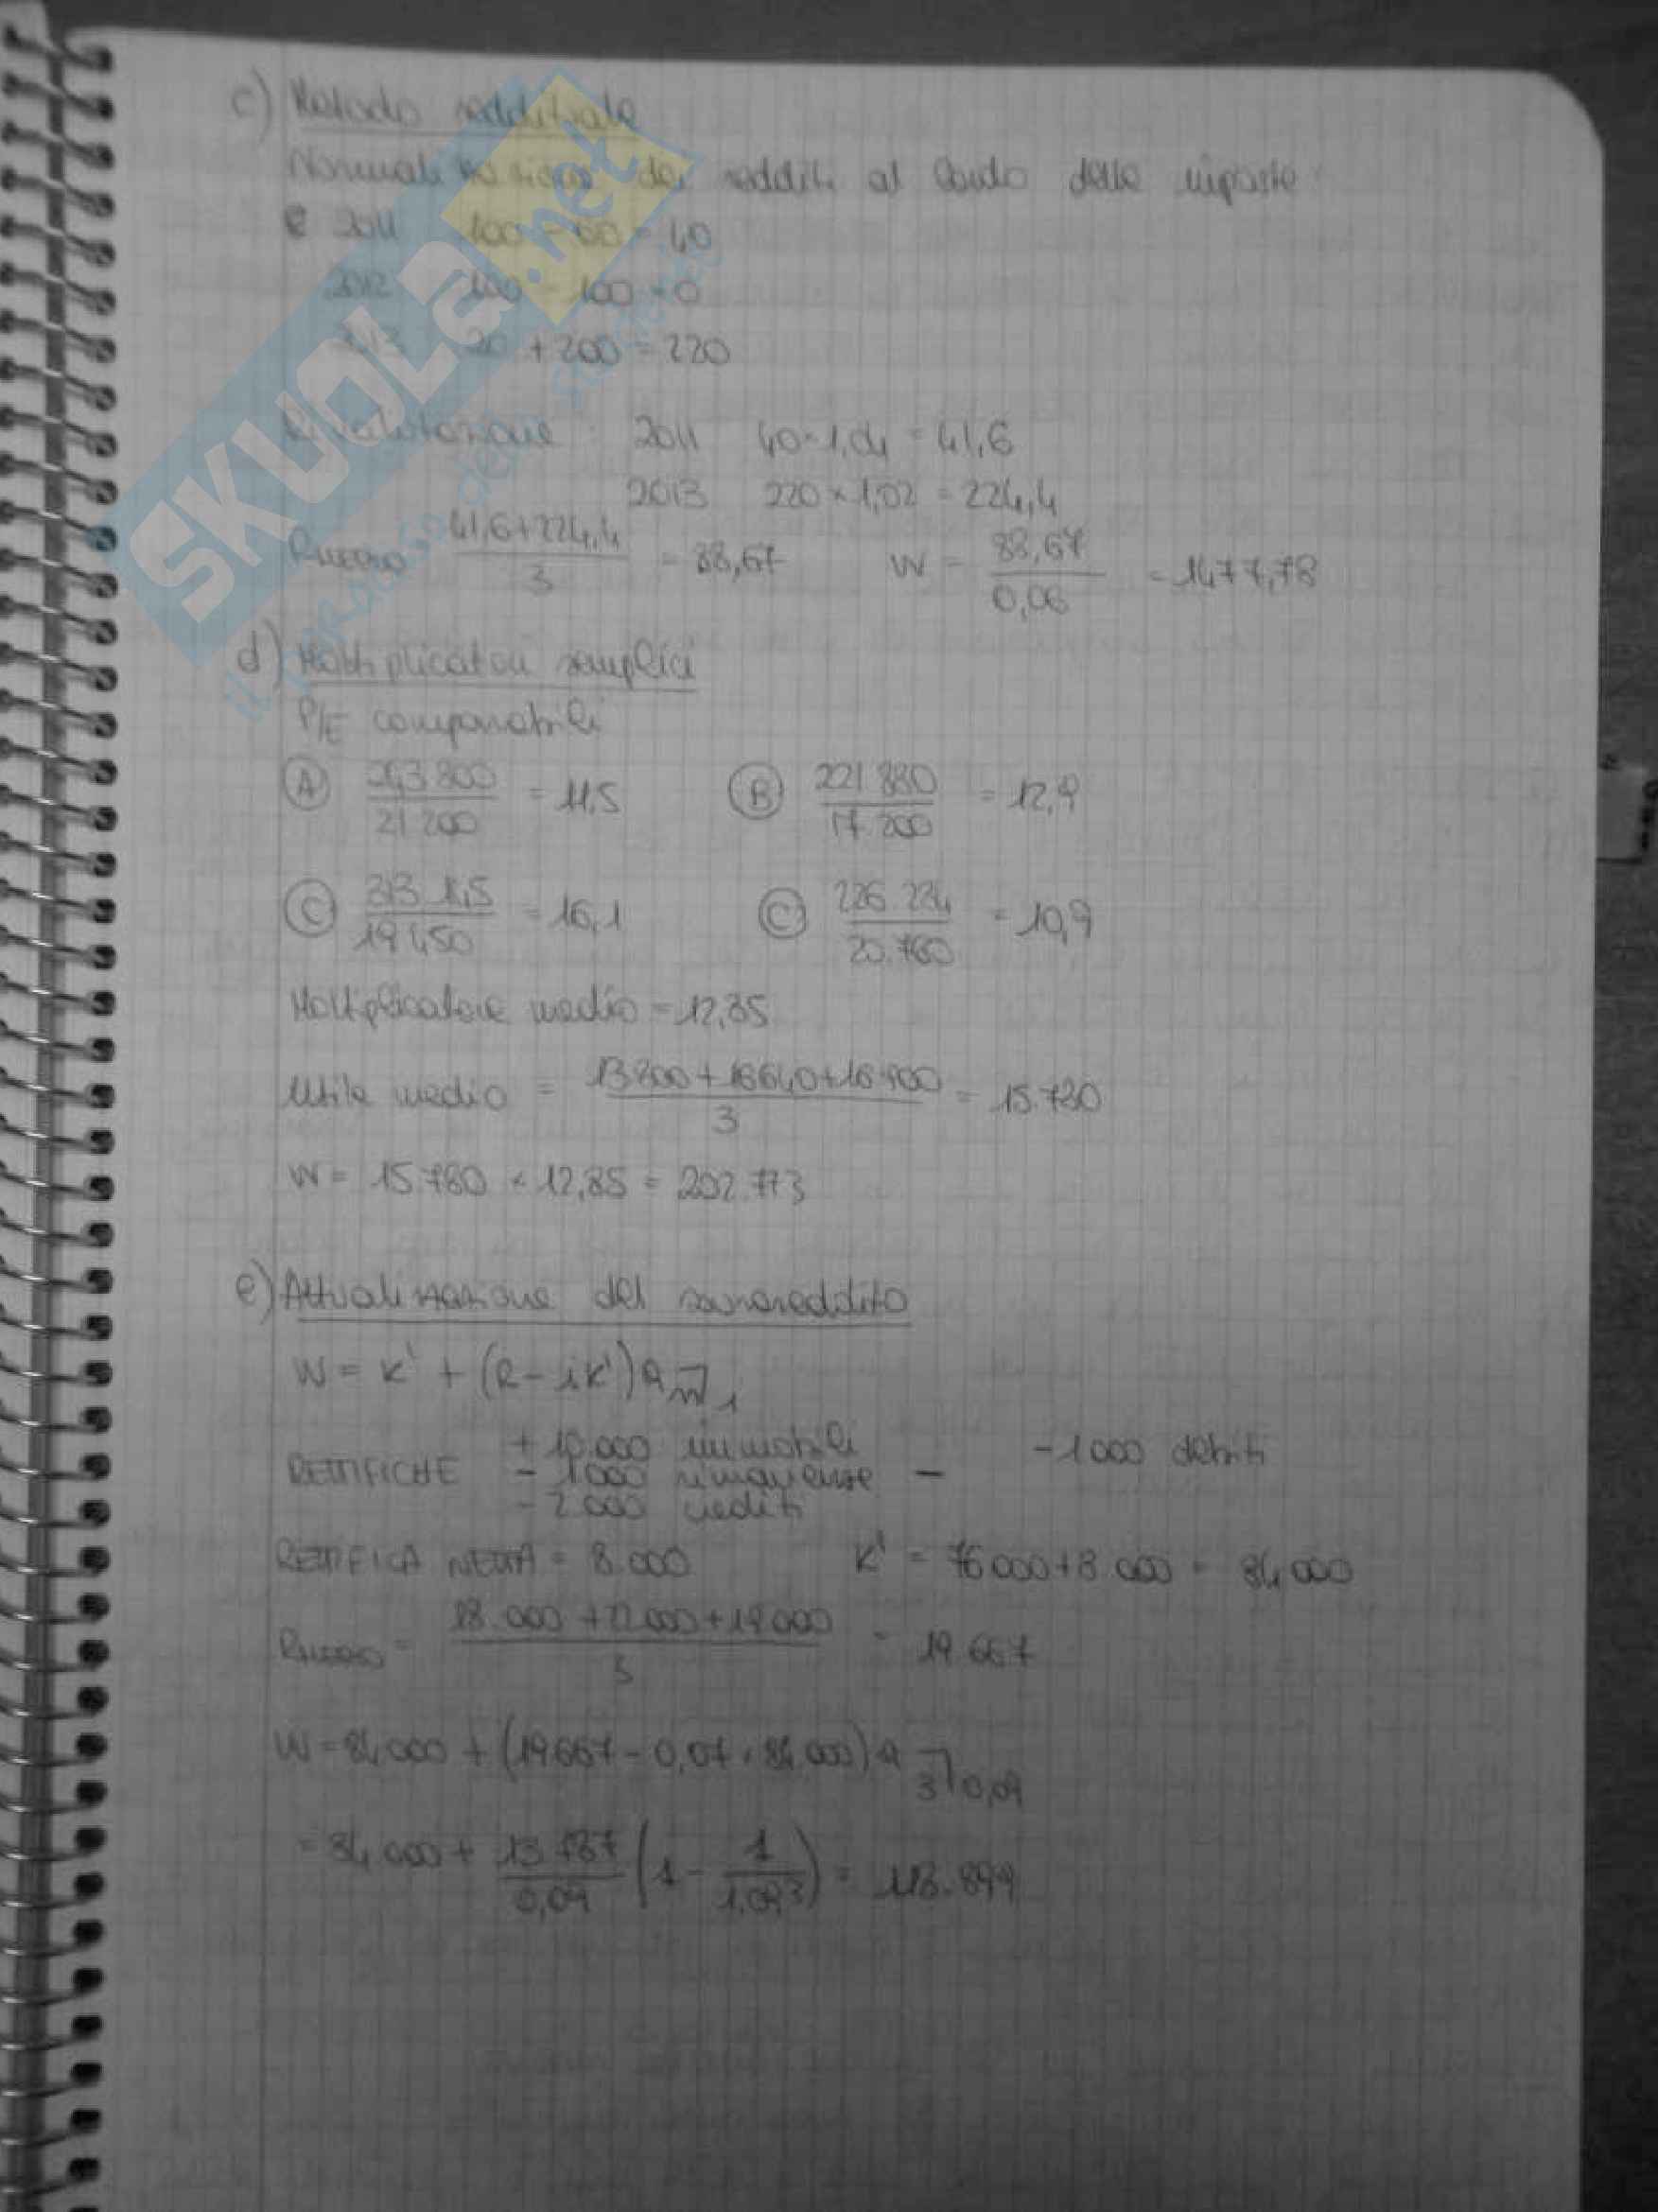 c) Metodo reddituale
Normalizzazione dei redditi al lordo delle imposte
R 2011 100 - 60 = 40
2012 100 - 100 = 0
2013 20 + 200 = 220
Rivalutazione : 2011 40 × 1,04 = 41,6
2013 220 × 1,02 = 224,4
Rmedio 41,6+224,4 / 3 = 88,67 W = 88,67 / 0,06 = 1477,78
d) Moltiplicatori semplici
P/E comparabili
A 243 800 / 21 200 = 11,5 B 221 880 / 17 200 = 12,9
C 313 145 / 19 450 = 16,1 C 226 234 / 20.760 = 10,9
Moltiplicatore medio = 12,85
Utile medio = / 3 = 15.780
W = 15.780 × 12,85 = 202.773
e) Attualizzazione del sovrareddito
W = K' + (R - iK') a n̅| i
+ 10.000 immobili - 1 000 debiti
RETTIFICHE - 1000 rimanenze -
- 2.000 crediti
RETTIFICA NETTA = 8.000 K' = 76 000 + 8.000 = 84 000
Rmedio = 18.000 + 22.000 + 19 000 / 3 = 19 667
W = 84 000 + (19 667 - 0,07 · 84.000) a 3̅| 0,09
= 84 000 + 13 787 / 0,09 (1 - 1 / 1,09³) = 118.899
SKUOLA.net